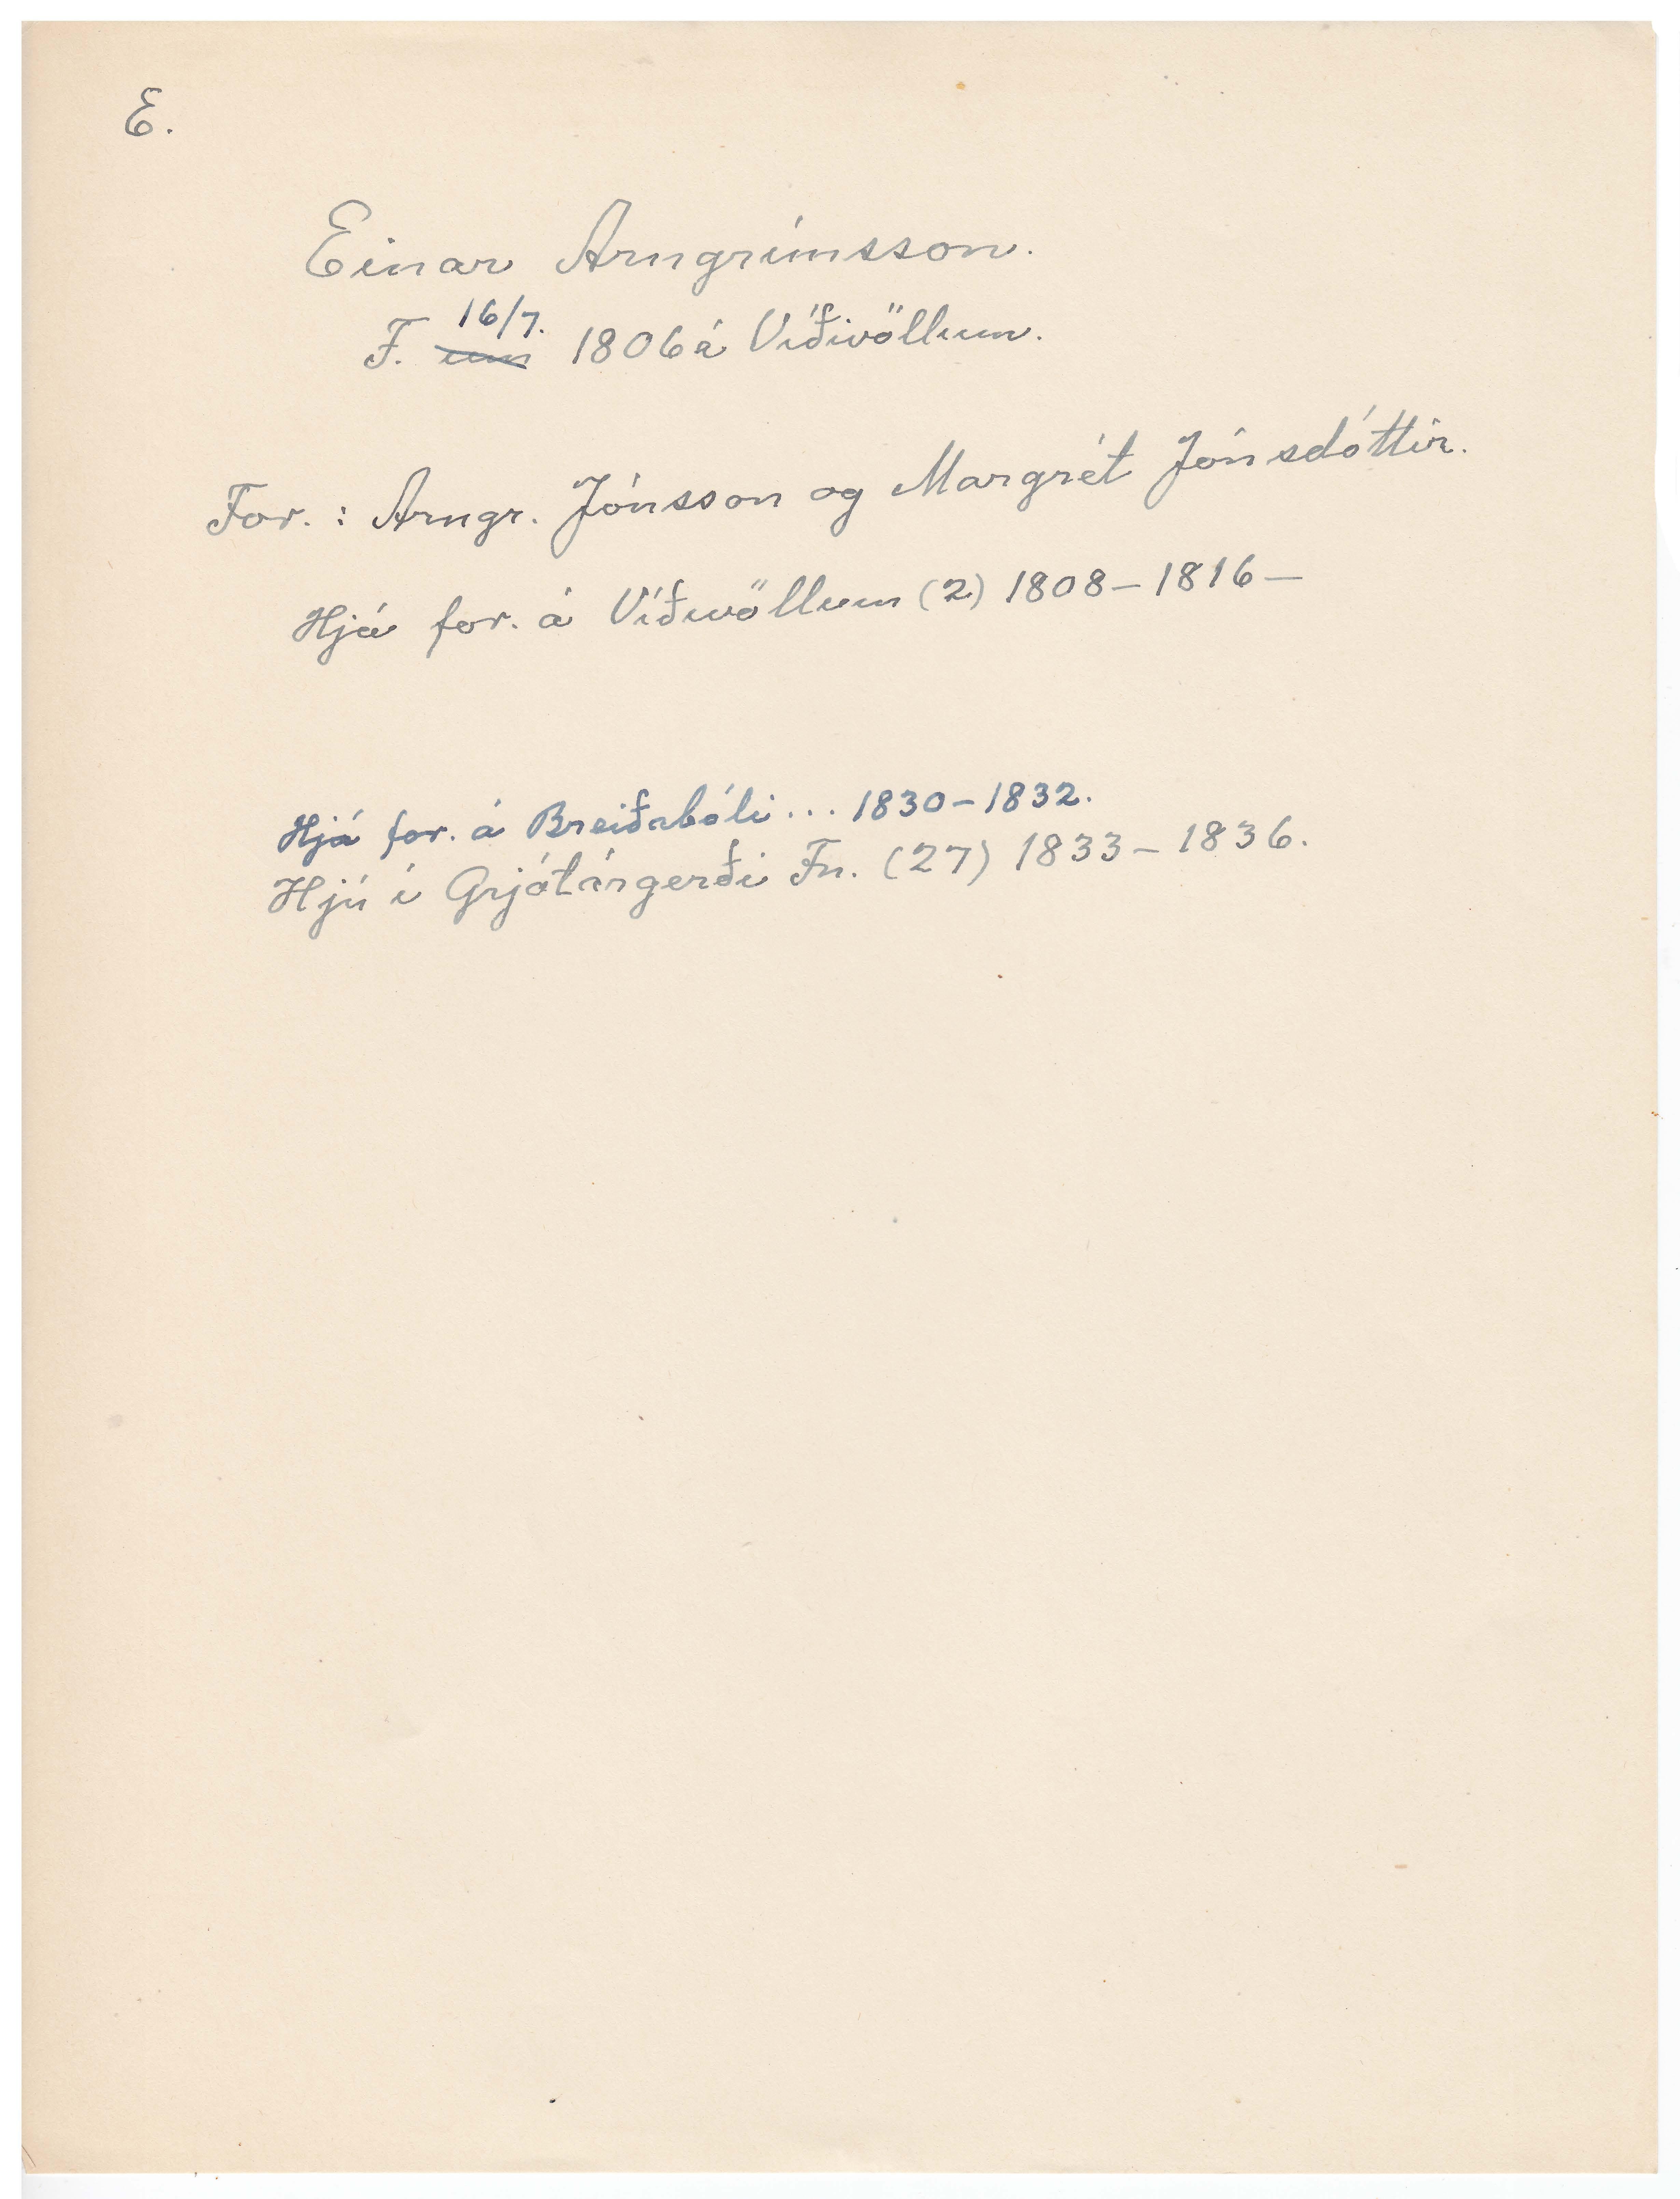 E.
Einar Arngrímsson.
16/7.
F. um 1806 á Víðivöllum.
For. : Arngr. Jónsson og Margrét Jónsdóttir.
Hjá for. á Víðivöllum (2) 1808 – 1816 –
Hjá for. á Breiðabóli ... 1830 – 1832.
Hjú í Grjótárgerði Fn. (27) 1833 – 1836.